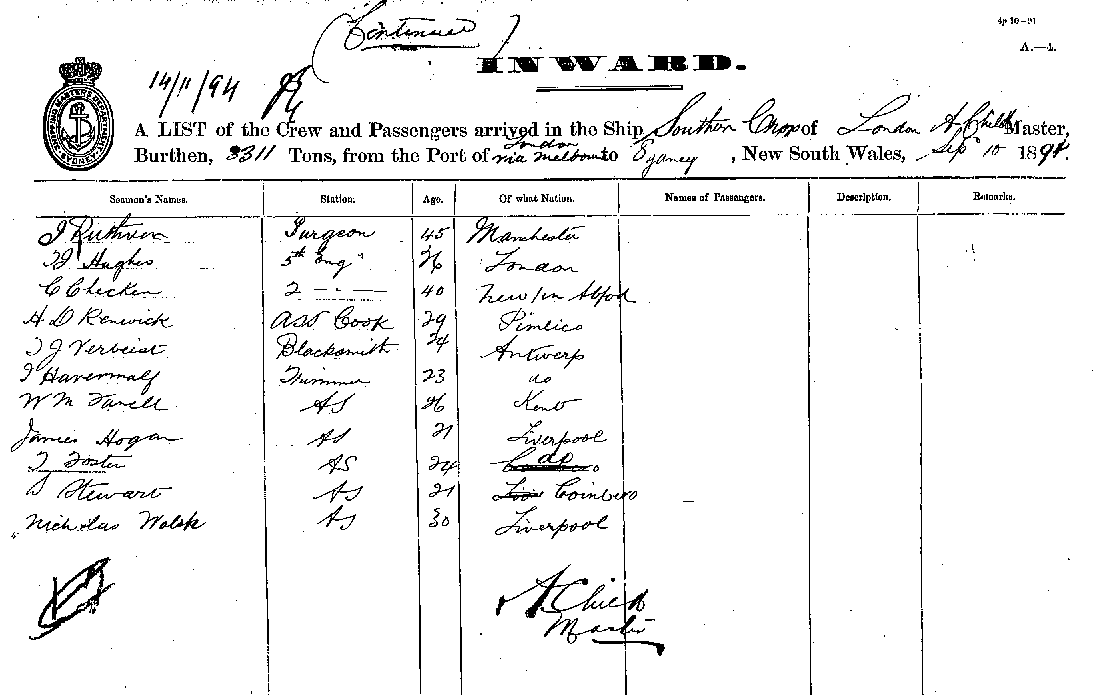 (Continued)
4p 10-91
A.—4.
INWARD.
14/11/94
A LIST of the Crew and Passengers arrived in the Ship Southern Cross of London A Child Master,
Burthen, 3311 Tons, from the Port of London via Melbourne to Sydney, New South Wales, Sep 10 1894.
Seamen's Names. Station. Age. Of what Nation. Names of Passengers. Description. Remarks.
J Ruthven Surgeon 45 Manchester
Hughes 5th Eng 26 London
C Chicken 2 — " — 40
H D Renwick Asst Cook 29 Pimlico
J Verbeist Blacksmith 24 Antwerp
Trimmer 23 do
W M AS 26 Kent
James Hogan AS 21 Liverpool
T Foster AS 24 do
Stewart AS 21
Nicholas Walsh AS 30 Liverpool
A Child
Master